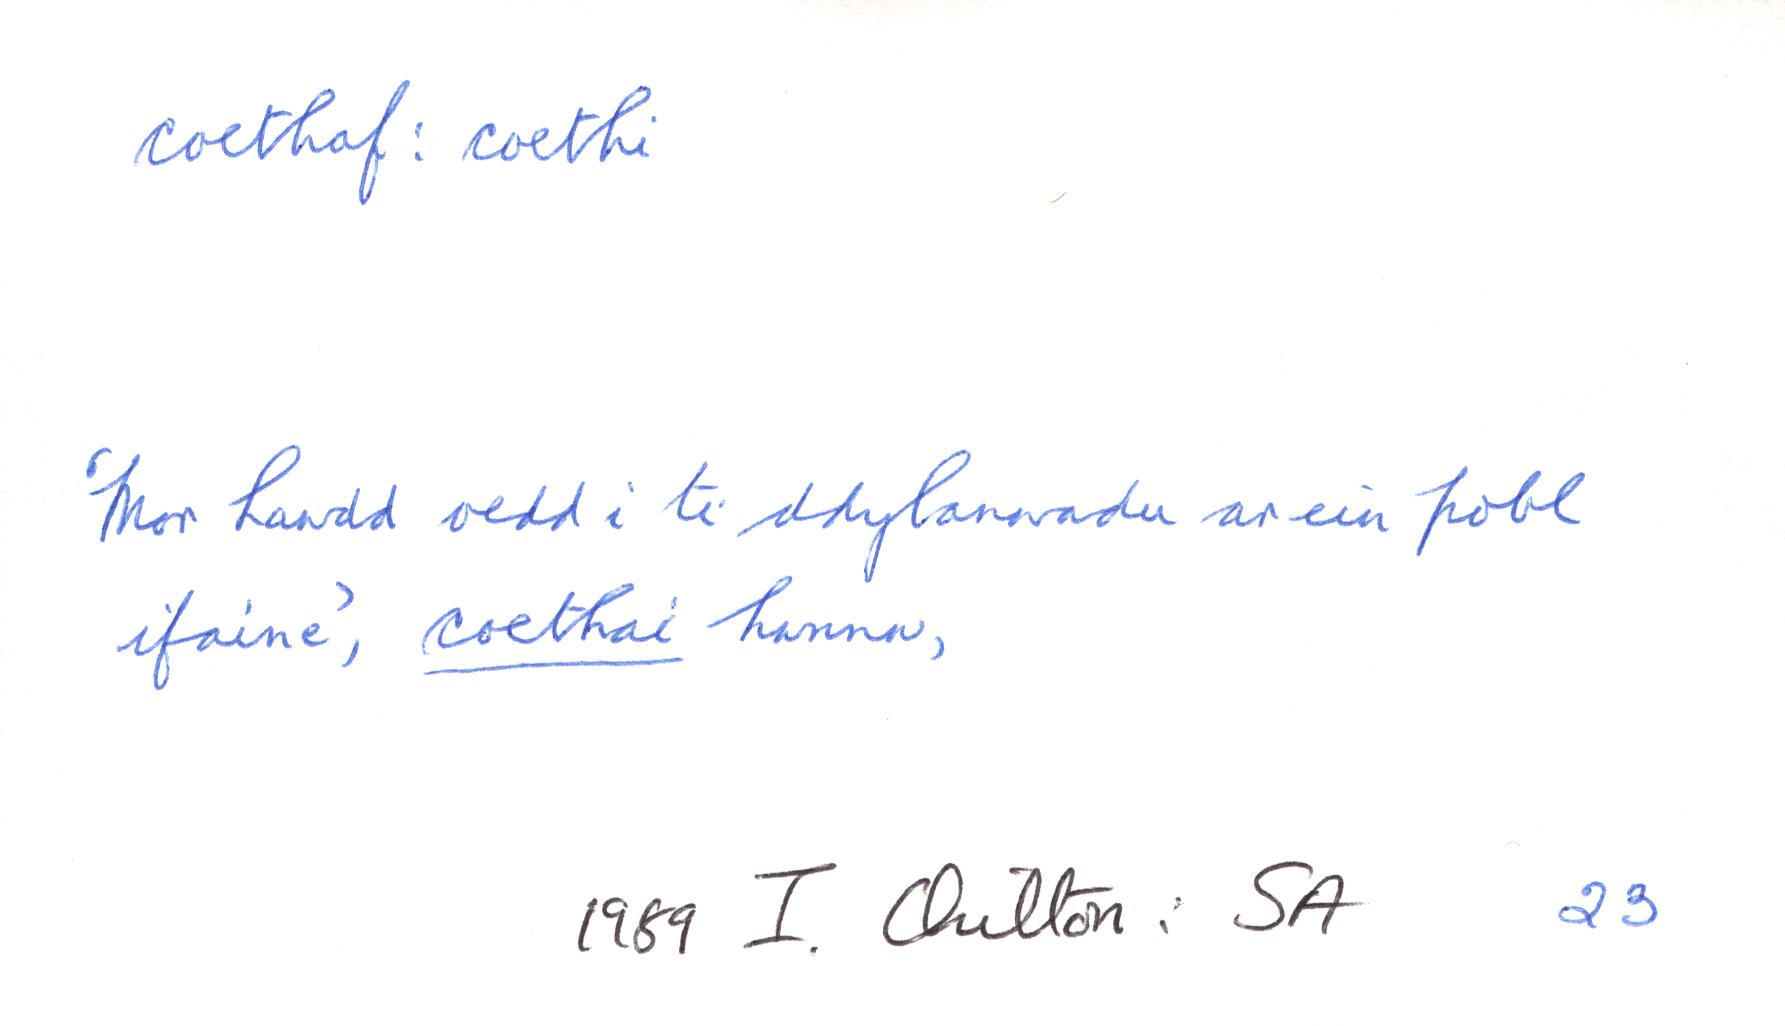 coethaf: coethi
'Mor hawdd oedd i ti ddylanwadu ar ein pobl
ifainc', coethai hwnnw,
1989 I. Chilton: SA 23